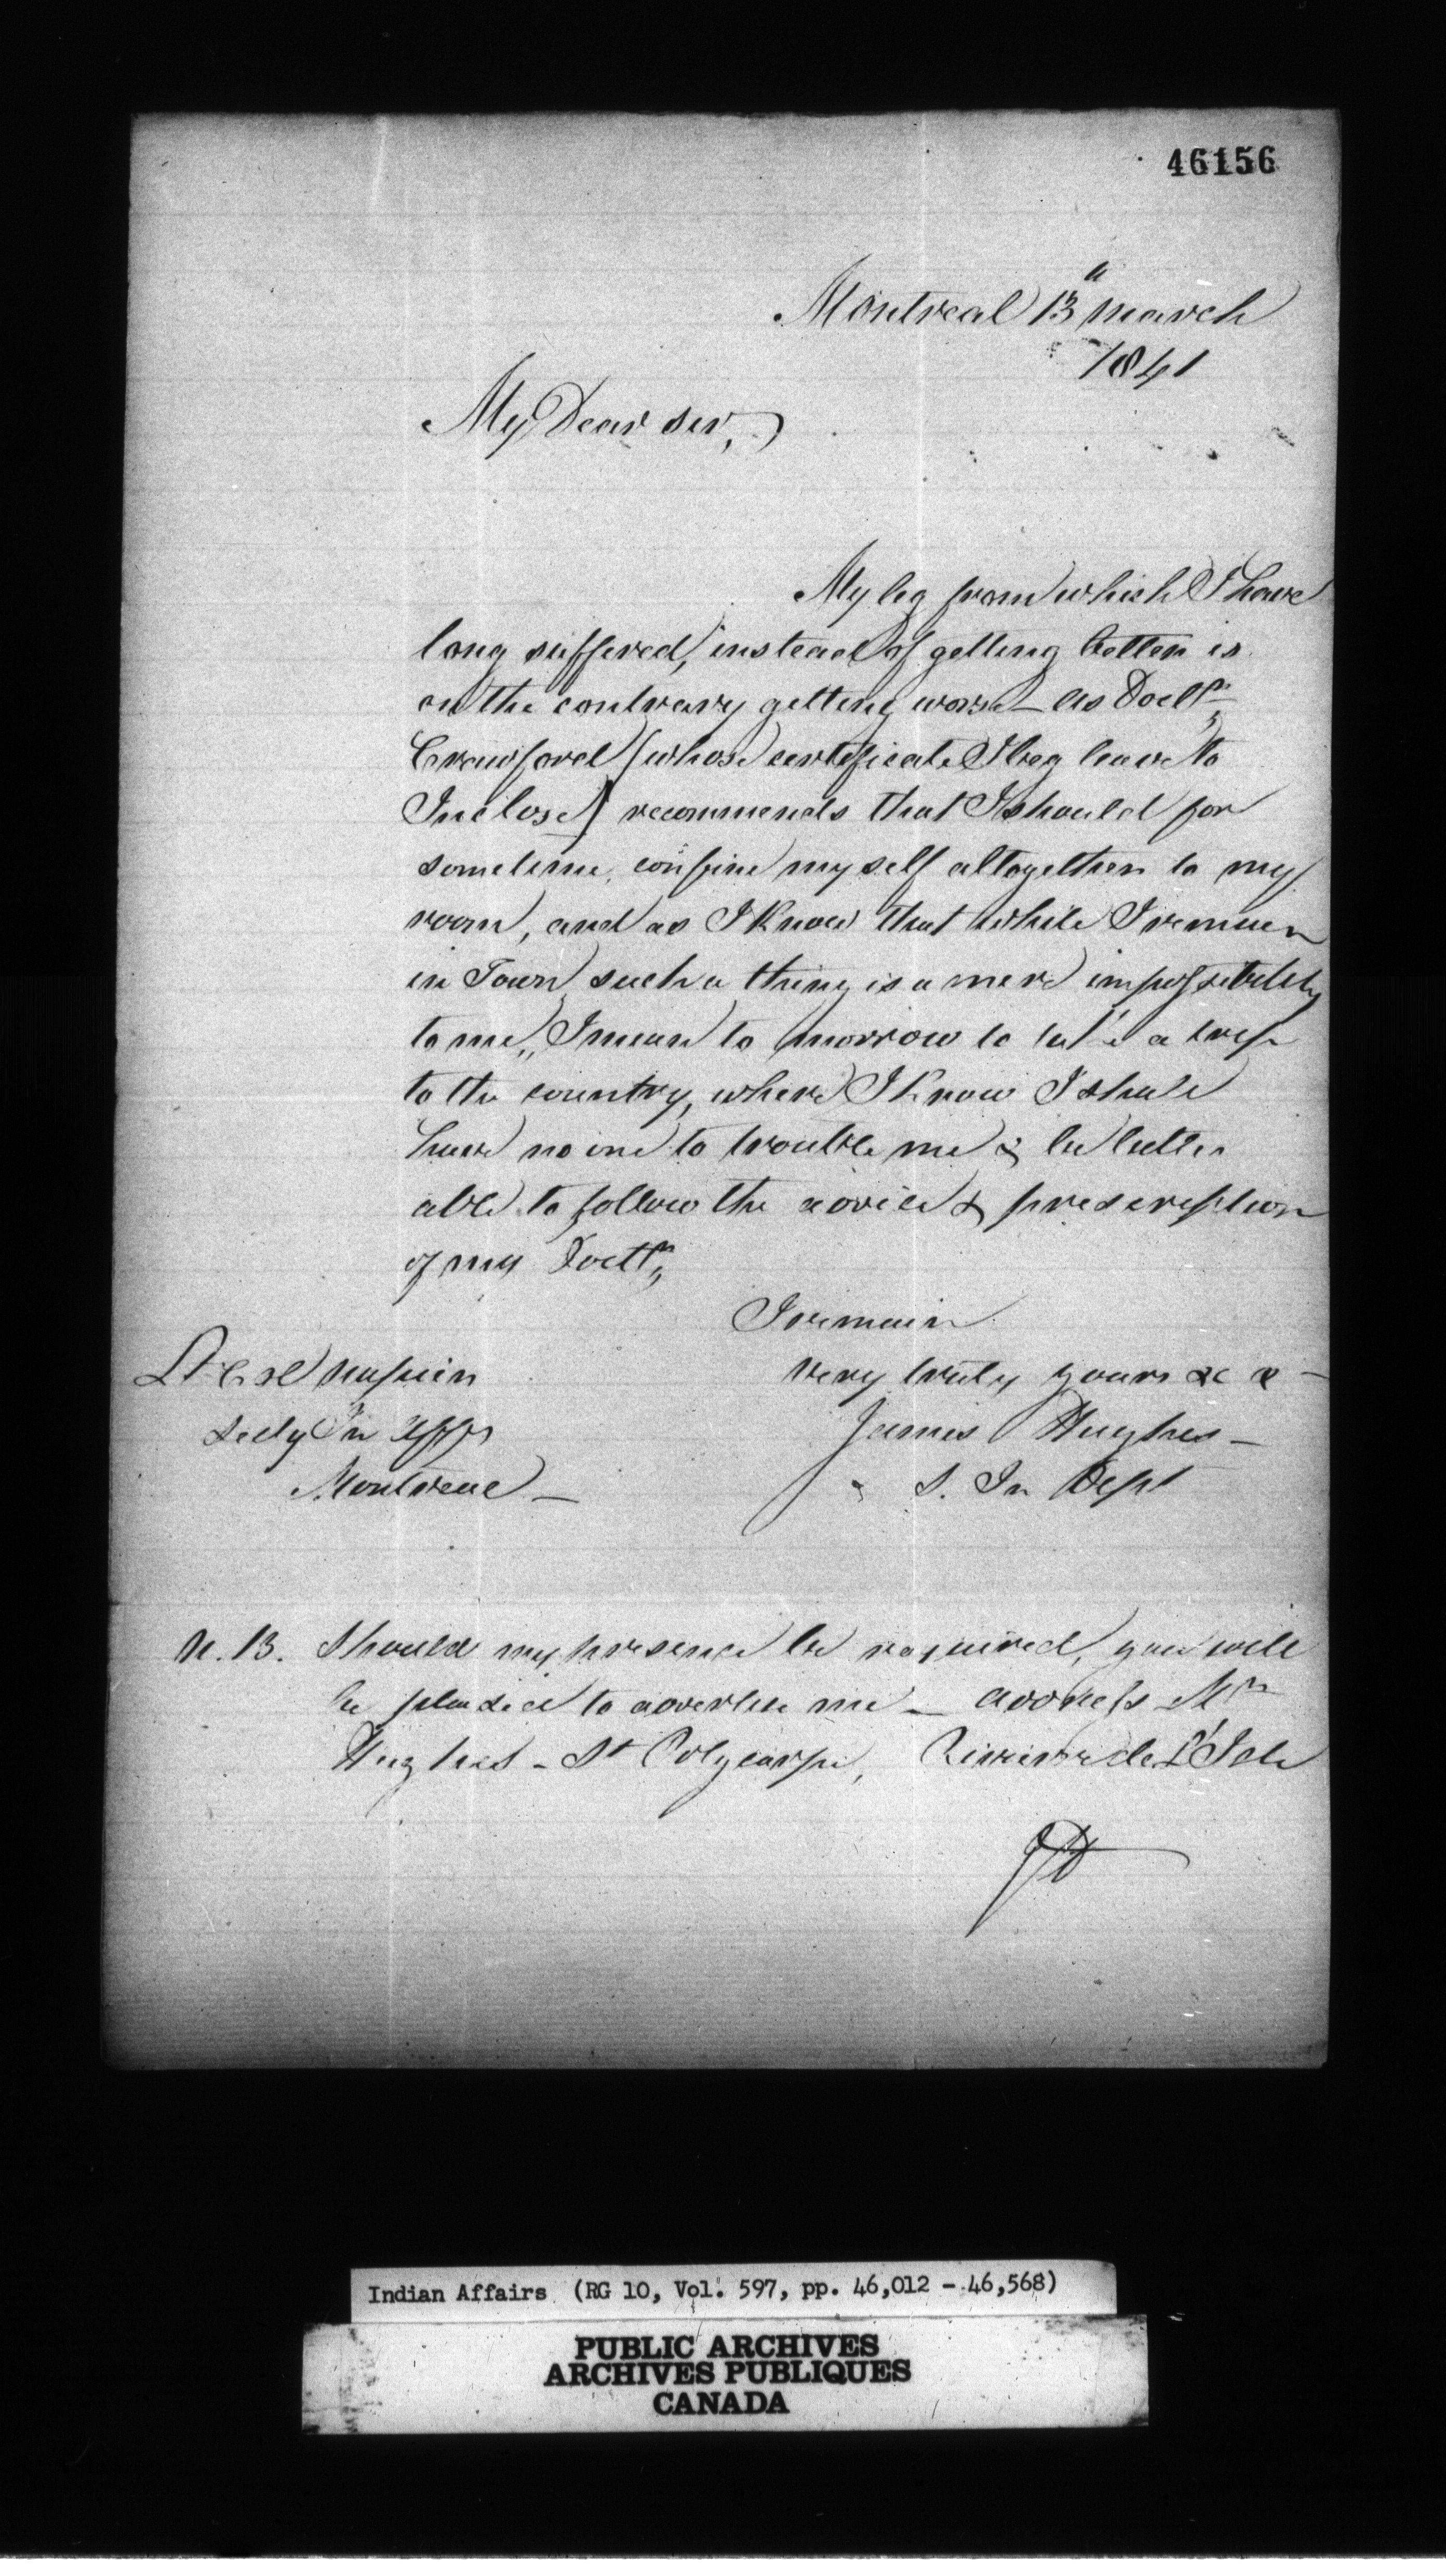 46156
Montreal 13th March
1841
My Dear Sir,
My leg from which I have
long suffered, instead of getting better is
on the contrary getting worse – as Doctr
Crawford (whose certificate I beg leave to
Inclose) recommends that I should for
sometime, confine myself altogether to my
room, and as I know that while I remain
in Town such a thing is a mere impossibility
to me, I mean to morrow to take a trip
to the country, where I know I shall
have no one to trouble me & be better
able to follow the advice & prescription
of my Doctr,
I remain
very truly yours &c &
James Hughes –
S. In Dept
Lt Col Napier
Secy In Affrs
Montreal –
N.B. Should my presence be required, you will
be pleased to advertise me – address Mr
Hughes – St Polycarpe, Riviere de L'Isle
JH
Indian Affairs (RG 10, Vol. 597, pp. 46,012 - 46,568)
PUBLIC ARCHIVES
ARCHIVES PUBLIQUES
CANADA